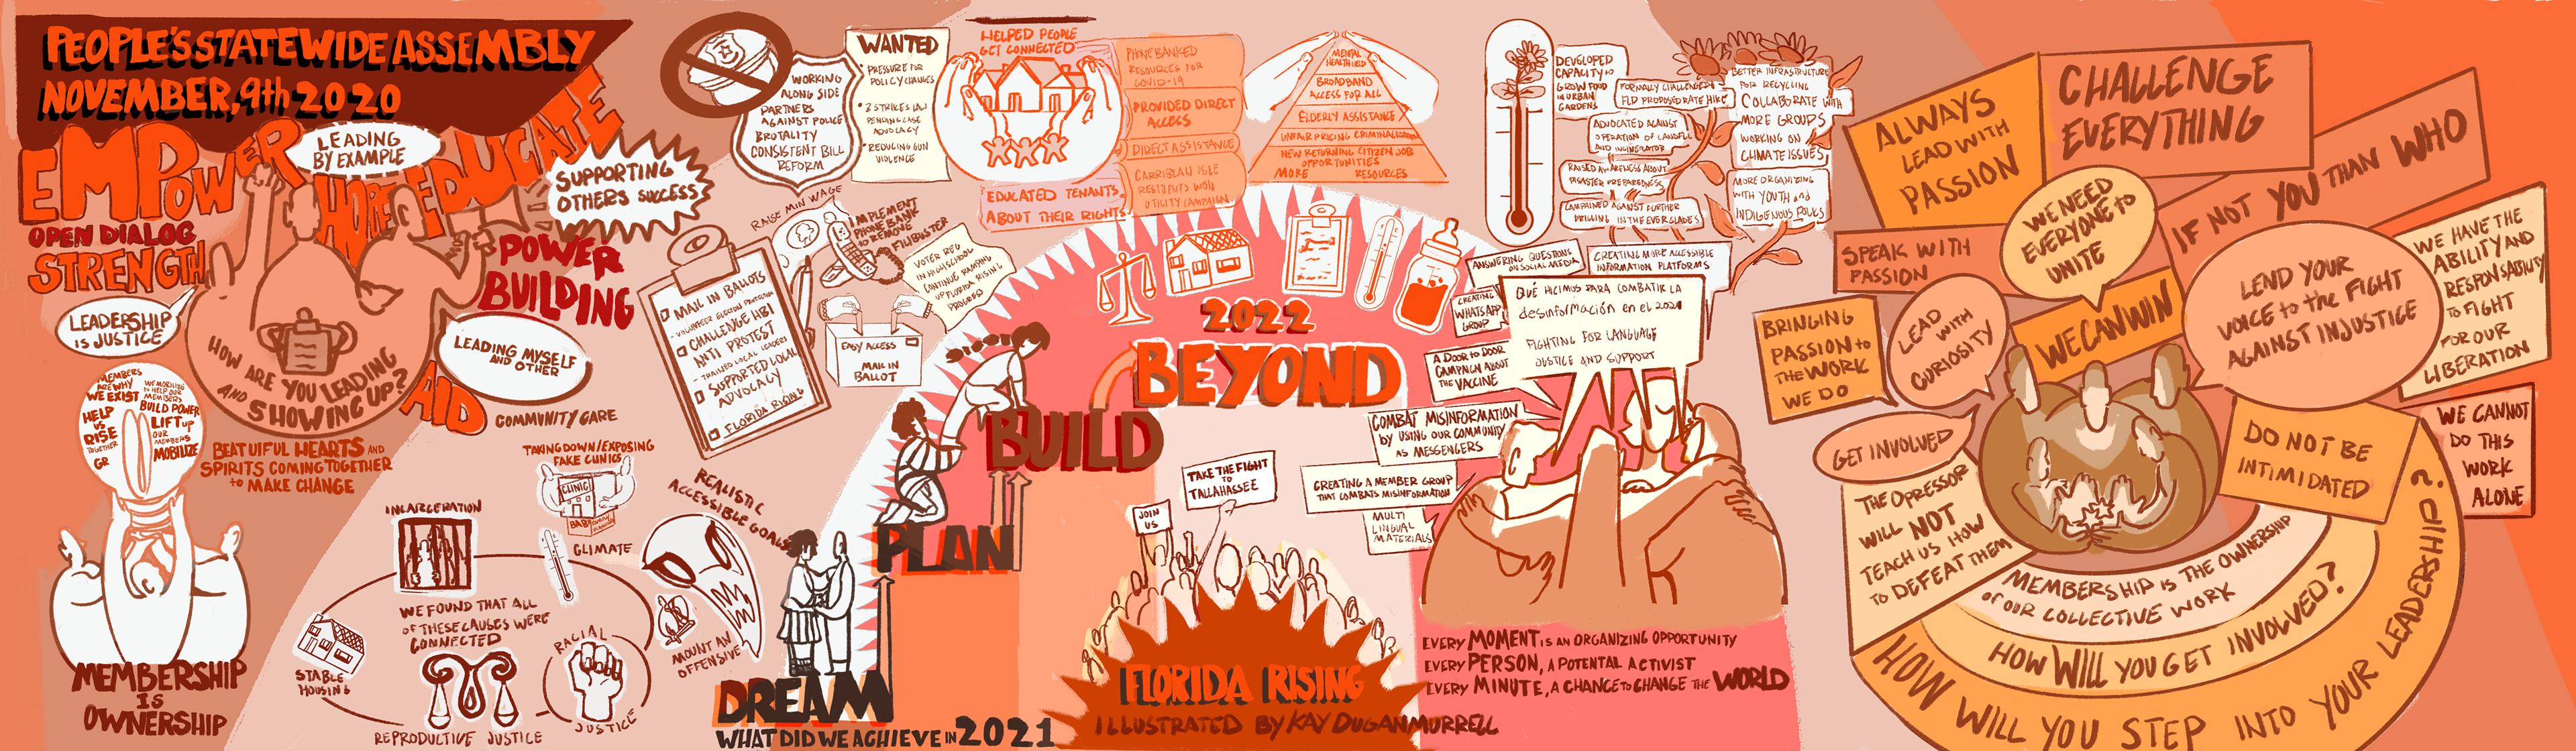 PEOPLE'S STATEWIDE ASSEMBLY
NOVEMBER, 9th 2020
EMPOWER
HOPE
EDUCATE
LEADING
BY EXAMPLE
SUPPORTING
OTHERS SUCCESS
OPEN DIALOG
STRENGTH
POWER
BUILDING
LEADERSHIP
IS JUSTICE
HOW ARE YOU LEADING
AND SHOWING UP?
LEADING MYSELF
AND OTHER
AID
COMMUNITY CARE
MEMBERS
ARE WHY
WE EXIST
HELP
US
RISE
TOGETHER
GR
WE MOBILIZE
to HELP OUR
MEMBERS
BUILD POWER
LIFT up
OUR
MEMBERS
MOBILIZE
BEATUIFUL HEARTS AND
SPIRITS COMING TOGETHER
to MAKE CHANGE
MEMBERSHIP
IS
OWNERSHIP
TAKING DOWN/EXPOSING
FAKE CLINICS
CLINIC
INCARCERATION
CLIMATE
WE FOUND THAT ALL
OF THESE CAUSES WERE
CONNECTED
STABLE
HOUSING
REPRODUCTIVE JUSTICE
RACIAL
JUSTICE
REALISTIC
ACCESSIBLE GOALS
MOUNT AN
OFFENSIVE
WORKING
ALONG SIDE
PARTNERS
AGAINST POLICE
BRUTALITY
CONSISTENT BILL
REFORM
WANTED
• PRESSURE FOR
POLICY CHANGES
• 3 STRIKES LAW
PENDING CASE
ADVOCACY
• REDUCING GUN
VIOLENCE
HELPED PEOPLE
GET CONNECTED
PHONE BANKED
RESOURCES FOR
COVID-19
PROVIDED DIRECT
ACCESS
DIRECT ASSISTANCE
CARRIBEAN ISLE
RESIDENTS WON
UTILITY CAMPAIGN
EDUCATED TENANTS
ABOUT THEIR RIGHTS
MENTAL
HEALTH
BROADBAND
ACCESS FOR ALL
ELDERLY ASSISTANCE
UNFAIR PRICING CRIMINALIZATION
NEW RETURNING CITIZEN JOB
OPPORTUNITIES
MORE RESOURCES
RAISE MIN WAGE
IMPLEMENT
PHONE BANK
TO REMOVE
FILIBUSTER
VOTER REG
IN HIGHSCHOOL
CONTINUE RAMPING
UP FLORIDA RISING
PROGRESS
MAIL IN BALLOTS
- VOLUNTEER ELECTION PROTECTION
CHALLENGE HB1
ANTI PROTEST
- TRAINED LOCAL LEADERS
SUPPORTED LOCAL
ADVOCACY
FLORIDA RISING
EASY ACCESS
MAIL IN
BALLOT
2022
BEYOND
BUILD
PLAN
DREAM
WHAT DID WE ACHIEVE IN 2021
JOIN
US
TAKE THE FIGHT
TO
TALLAHASSEE
FLORIDA RISING
ILLUSTRATED BY KAY DUGANMURRELL
DEVELOPED
CAPACITY to
GROW FOOD
IN URBAN
GARDENS
FORMALLY CHALLENGED
FLP PROPOSED RATE HIKE
ADVOCATED AGAINST
OPERATION OF LANDFILL
AND INCINERATOR
RAISED AWARENESS ABOUT
DISASTER PREPAREDNESS
CAMPAINED AGAINST FURTHER
DRILLING IN THE EVERGLADES
BETTER INFRASTRUCTURE
FOR RECYCLING
COLLABORATE WITH
MORE GROUPS
WORKING ON
CLIMATE ISSUES
MORE ORGANIZING
WITH YOUTH and
INDIGENOUS FOLKS
ANSWERING QUESTIONS
ON SOCIAL MEDIA
CREATING MORE ACCESSIBLE
INFORMATION PLATFORMS
CREATING
WHATSAPP
GROUP
QUÉ HICIMOS PARA COMBATIR LA
desinformación en el 2021
FIGHTING FOR LANGUAGE
JUSTICE AND SUPPORT
A DOOR to DOOR
CAMPAIGN ABOUT
THE VACCINE
COMBAT MISINFORMATION
by USING OUR COMMUNITY
AS MESSENGERS
CREATING A MEMBER GROUP
THAT COMBATS MISINFORMATION
MULTI
LINGUAL
MATERIALS
EVERY MOMENT IS AN ORGANIZING OPPORTUNITY
EVERY PERSON, A POTENTAL ACTIVIST
EVERY MINUTE, A CHANCE to CHANGE THE WORLD
ALWAYS
LEAD WITH
PASSION
CHALLENGE
EVERYTHING
IF NOT YOU THAN WHO
SPEAK WITH
PASSION
WE NEED
EVERYONE to
UNITE
WE HAVE THE
ABILITY AND
RESPONSABILITY
TO FIGHT
FOR OUR
LIBERATION
BRINGING
PASSION to
THE WORK
WE DO
LEAD
WITH
CURIOSITY
WE CAN WIN
LEND YOUR
VOICE to the FIGHT
AGAINST INJUSTICE
GET INVOLVED
DO NOT BE
INTIMIDATED
WE CANNOT
DO THIS
WORK
ALONE
THE OPRESSOR
WILL NOT
TEACH US HOW
TO DEFEAT THEM
MEMBERSHIP IS THE OWNERSHIP
of OUR COLLECTIVE WORK
HOW WILL YOU GET INVOLVED?
HOW WILL YOU STEP INTO YOUR LEADERSHIP?